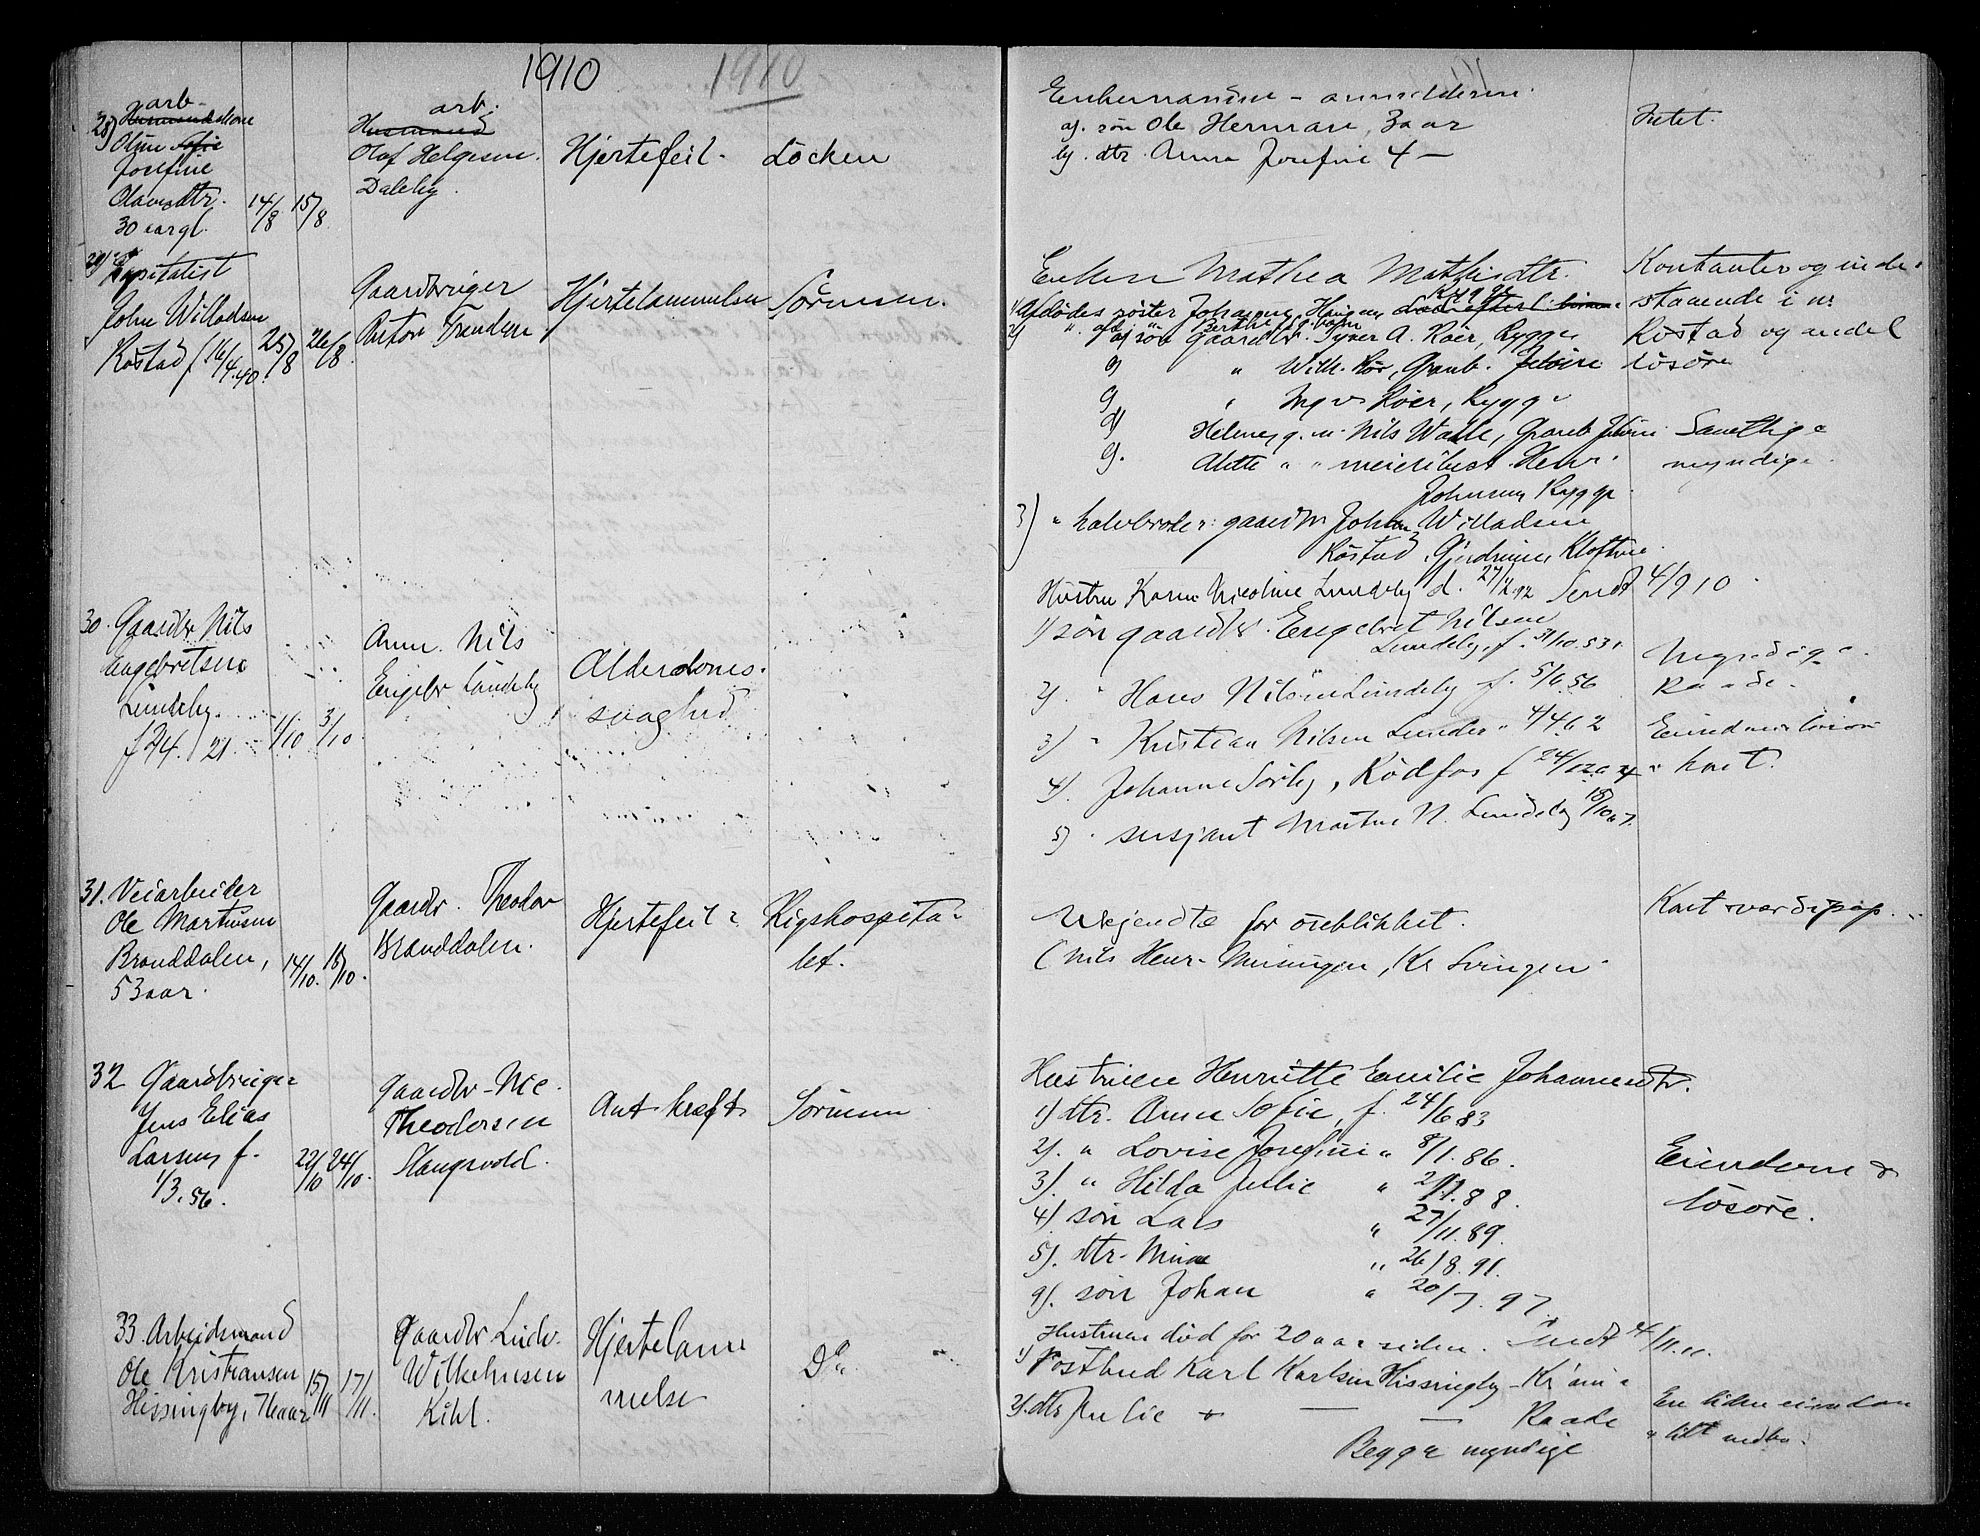 1910
1910
28)
arb-
Oline Sofie
Josefine
Olavsdtr.
30 aar gl.
14/8
15/8
arb.
Husmand
Olaf Helgesen
Daleby.
Hjertefeil.
Löcken
Enkemanden - anmelderen.
a). sön Ole Herman, 3 aar
b). dtr. Anna Josefine 4 —
Intet.
29)
Kapitalist
John Willadsen
Röstad f. 16/4.40.
25/8
26/8
Gaardbruger
Anton Frendsen
Hjertelammelse
Sörmen.
Enken Mathea Mathisdtr.
1) Afdödes söster Johanne, Haugen, Rygge
2) " afd. " Berthe's g. barn
a) sön Gaardbr. Syver A. Röer, Rygge
" Wilh. Rör, Graab. Jelöen
" Ingv. Röer, Rygge
d) Helene g. m. Nils Walle, Graab. Jelöen
Alette " " meieribest. Henr.
Johnsen Rygge.
3) " halvbroder: gaardbr. Johan Willadsen
Röstad, Gjerdrum, Klöften.
Kontanter og inde-
staaende i
Röstad og andel
lösöre
Samtlige
myndige.
30. Gaardbr Nils
Engebretsen
Lundeby.
f 2/4. 21.
1/10
3/10
Anm. Nils
Engebr Lundeby
Alderdoms-
svaghed
Hustru Karen Nicoline Lundeby d. 27/2 92 Sendt 4/9 10
1) sön gaardbr. Engebret Nilsen
Lundeby, f. 31/10.53.
2). " Hans Nilsen Lundeby f. 5/6 56
3) " Kristian Nilsen Lundeby " 4/4 62
4). Johanne Sörby, Rödfos f 24/12
5) " sersjant Martin N. Lundeby 18/10
Myndige.
Raade.
Eiendom lösöre
kont.
31. Veiarbeider
Ole Martinsen
Branddalen,
53 aar.
14/10.
18/10.
Gaardbr. Theodor
Branddalen.
Hjertefeil?
Rigshospita-
let.
Ukjendte for öieblikket.
(Nils Henr. Musingen, Kr Svingen
Kont + verdipap.
32 Gaardbruger
Jens Elias
Larsen f.
1/3. 56.
22/10
24/10.
Gaardbr - Nic.
Theodorsen
Slangsvold.
Ant. kræft
Sörmen
Hustruen Henriette Emilie Johannesdtr.
1) dtr. Anna Sofie, f. 24/6 83
2). " Lovise Josefine " 8/1. 86.
3). " Hilda Julie " 2/1. 88.
4) sön Lars " 27/11. 89.
5). dtr. Mina " 26/8. 91.
9). sön Johan " 20/7. 97.
Eiendom &
lösöre.
33. Arbeidsmand
Ole Kristiansen
Hissingby, 76 aar
15/11
17/11.
Gaardbr Ludv.
Wilhelmsen
Kihl.
Hjertelam-
melse
Do.
Hustruen död for 20 aar siden. Sendt 24/11.11.
1) Postbud Karl Karlsen Hissingby - Kr.ania
2). dtr Julie + — — Raade
Begge myndige
En liden eiendom
" lidt indbo.